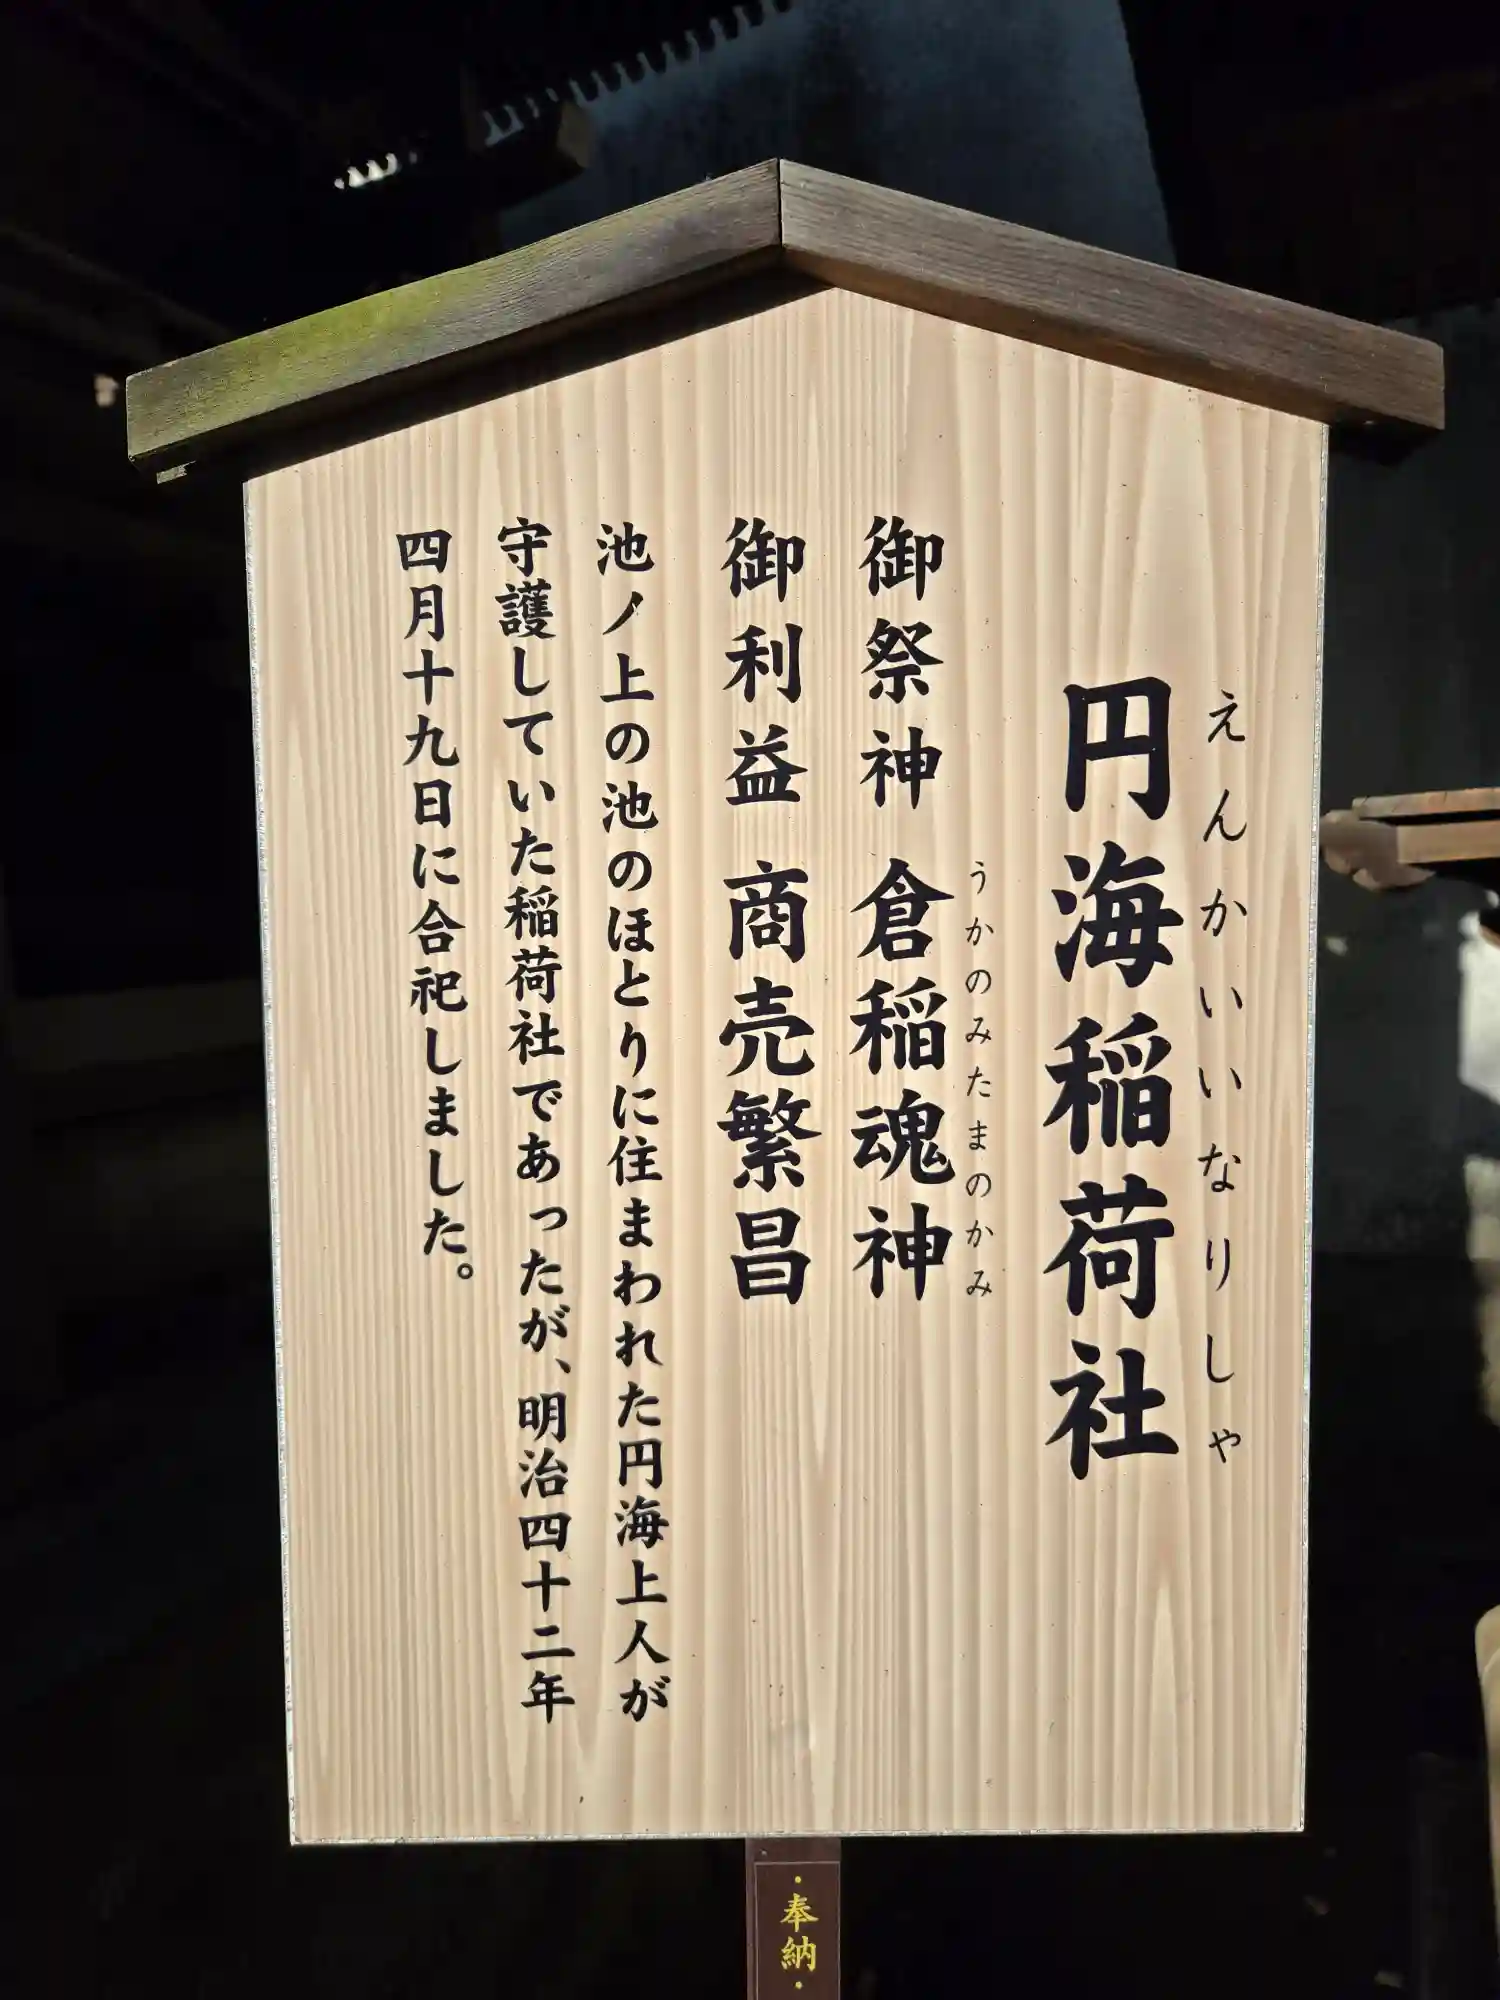 えんかいいなりしゃ
円海稲荷社
うかのみたまのかみ
御祭神 倉稲魂神
御利益 商売繁昌
池ノ上の池のほとりに住まわれた円海上人が
守護していた稲荷社であったが、明治四十二年
四月十九日に合祀しました。
・奉納・